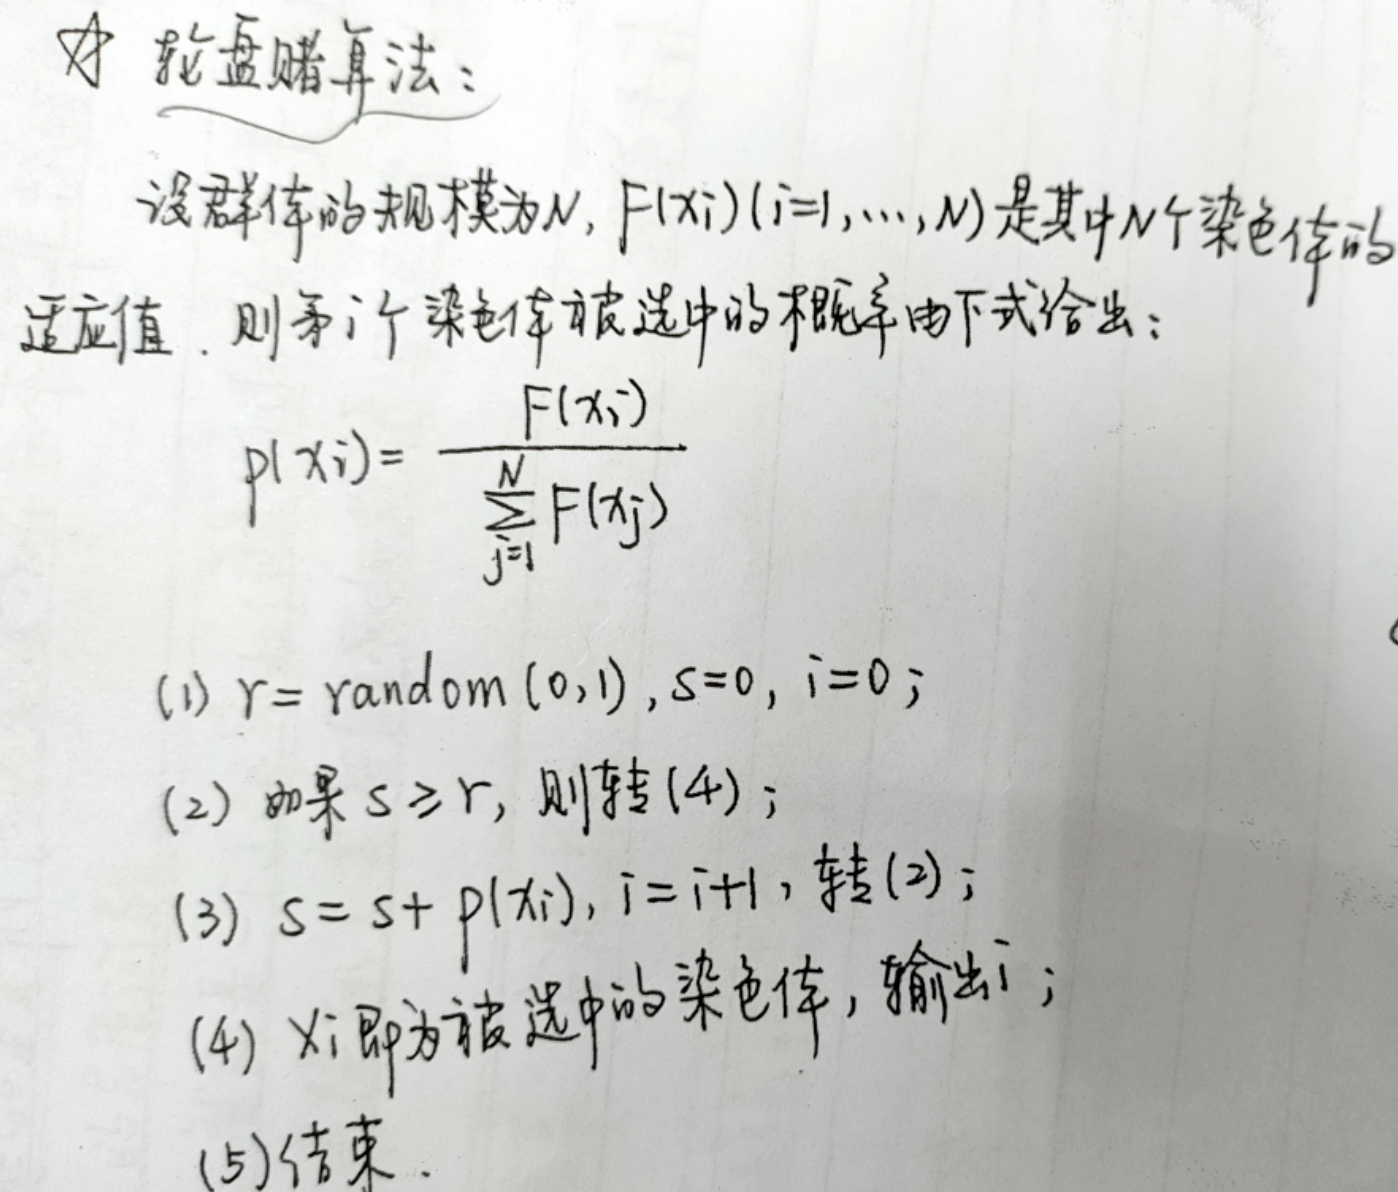 ☆ 轮盘赌算法：
设群体的规模为N, F(xi)(i=1,…,N)是其中N个染色体的
适应值. 则第i个染色体被选中的概率由下式给出：
p(xi)= F(xi) / ∑_{j=1}^{N} F(xj)
(1) r= random(0,1), s=0, i=0；
(2) 如果 s≥r, 则转(4)；
(3) s= s+ p(xi), i=i+1, 转(2)；
(4) xi即为被选中的染色体, 输出i；
(5)结束.